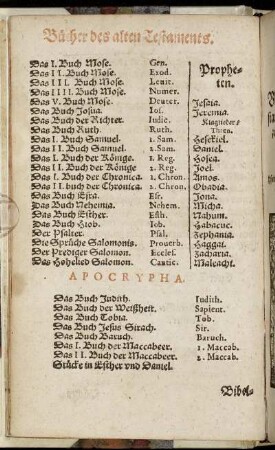 Bücher des alten Testaments.
Das I. Buch Mose. Gen.
Das II. Buch Mose. Exod.
Das III. Buch Mose. Leuit.
Das IIII. Buch Mose. Numer.
Das V. Buch Mose. Deuter.
Das Buch Josua. Ios.
Das Buch der Richter. Iudic.
Das Buch Ruth. Ruth.
Das I. Buch Samuel. 1. Sam.
Das II. Buch Samuel. 2. Sam.
Das I. Buch der Könige. 1. Reg.
Das II. Buch der Könige 2. Reg.
Das I. Buch der Chronica. 1. Chron.
Das II. buch der Chronica. 2. Chron.
Das Buch Esra. Esr.
Das Buch Nehemia. Nehem.
Das Buch Esther. Esth.
Das Buch Hiob. Iob.
Der Psalter. Psal.
Die Sprüche Salomonis. Prouerb.
Der Prediger Salomon. Eccles.
Das Hohelied Salomon. Cantic.
Prophe-
ten.
Jesaia.
Jeremia.
Klaglieder
Hesekiel.
Daniel.
Hosea.
Joel.
Amos.
Obadia.
Jona.
Micha.
Nahum.
Habacuc.
Zephania.
Haggai.
Zacharia.
Maleachi.
APOCRYPHA.
Das Buch Judith. Iudith.
Das Buch der Weißheit. Sapient.
Das Buch Tobia. Tob.
Das Buch Jesus Sirach. Sir.
Das Buch Baruch. Baruch.
Das I. Buch der Maccabeer. 1. Maccab.
Das II. Buch der Maccabeer. 2. Maccab.
Stücke in Esther vnd Daniel.
Bibel-